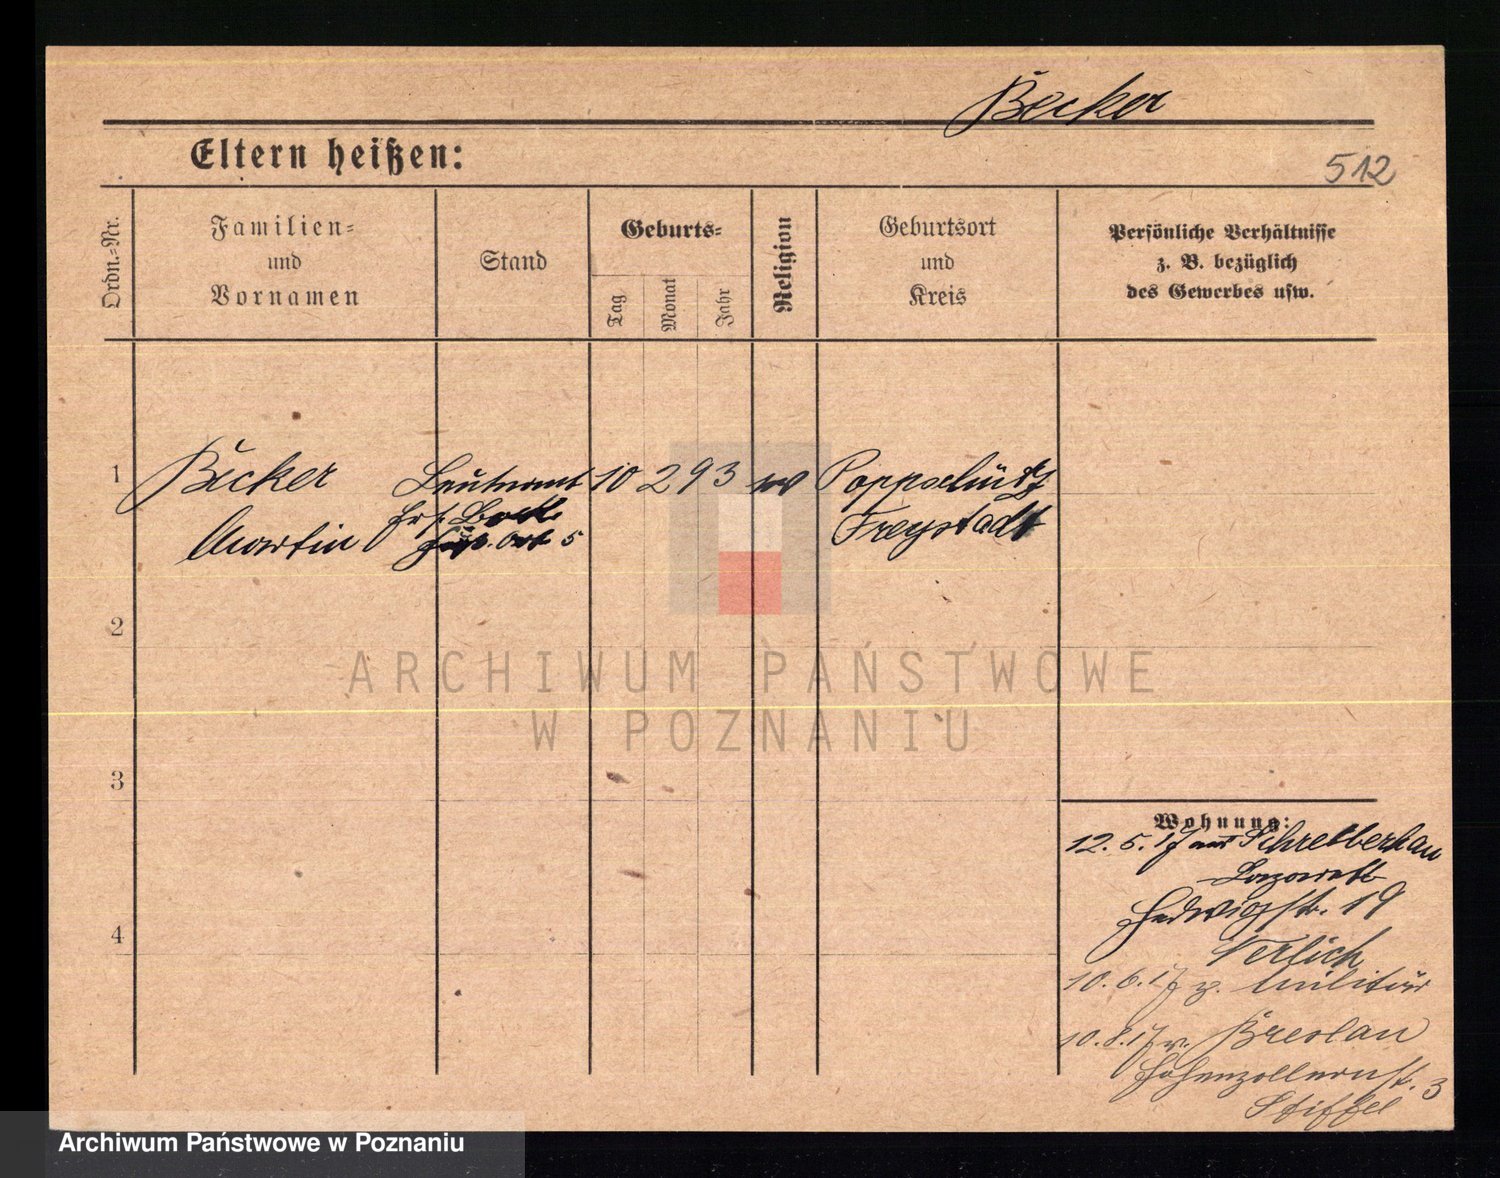 Becker
Eltern heißen:
512
Ordn.-Nr.
Familien-
und
Vornamen
Stand
Geburts-
Tag
Monat
Jahr
Religion
Geburtsort
und
Kreis
Persönliche Verhältnisse
z. B. bezüglich
des Gewerbes usw.
1
Becker
Martin
Leutnant
5
10 2 93
Poppschütz
Freystadt
2
ARCHIWUM PAŃSTWOWE
W POZNANIU
3
4
Wohnung:
12. 5. 17 aus Schreiberhau
Lazarett
Hedwigstr. 19
Nerlich
10. 6. 17 z. Militär
10. 8. 17 v. Breslau
Hohenzollernstr. 3
Stiffel
Archiwum Państwowe w Poznaniu